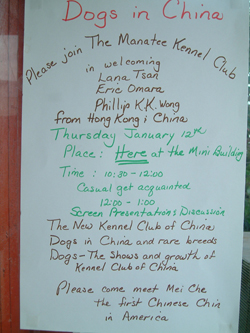 Dogs in China
Please join The Manatee Kennel Club
in welcoming
Lana Tsan
Eric Omara
Phillip K.K. Wong
from Hong Kong i China
Thursday January 12th
Place: Here at the Mini Building
Time: 10:30 - 12:00
Casual get acquainted
12:00 - 1:00
Screen Presentations Discussion
The New Kennel Club of China
Dogs in China and rare breeds
Dogs - The Shows and growth of
Kennel Club of China
Please come meet Mei Che
the first Chinese Chin
in America